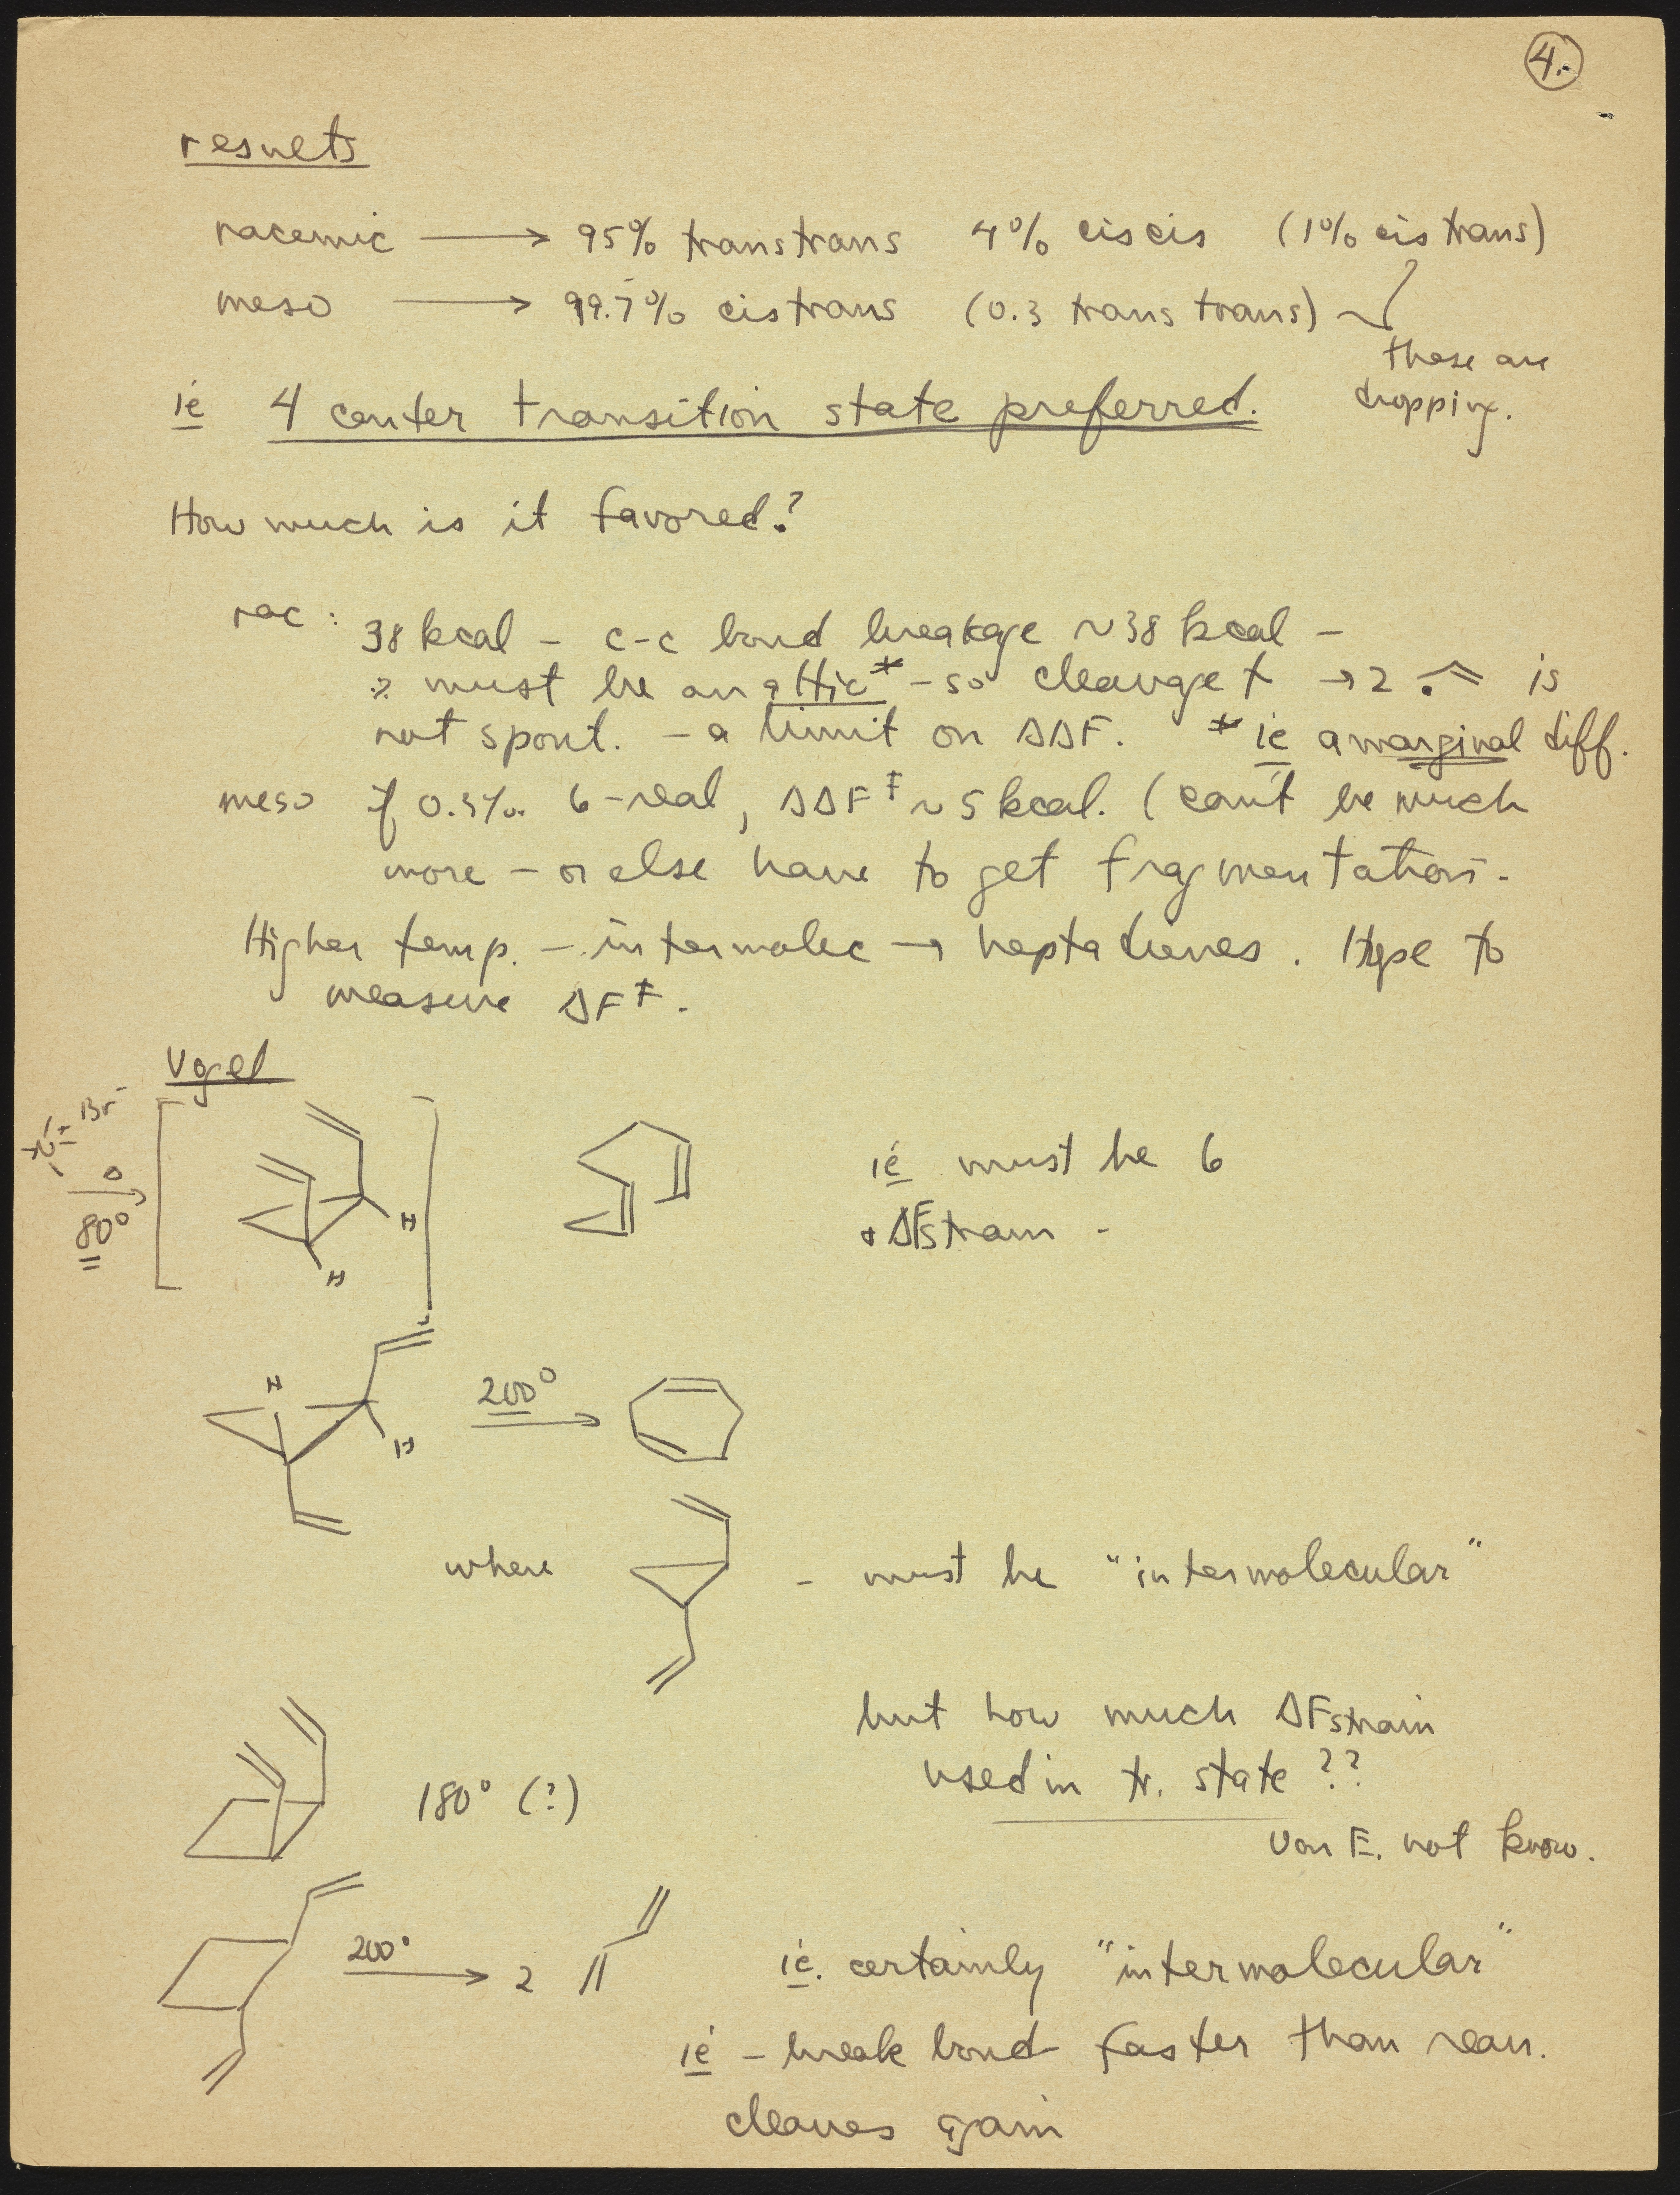 4.
results
racemic → 95% trans trans 4% cis cis (1% cis trans)
meso → 99.7% cis trans (0.3 trans trans)
these are
dropping.
ie 4 center transition state preferred.
How much is it favored?
rac : 38 kcal – c-c bond breakage ~38 kcal –
∴ must be an attic* – so cleavage → 2 is
not spont. – a limit on ΔΔF. * ie a marginal diff.
meso if 0.3% 6-real, ΔΔF‡ ~ 5 kcal. (can't be much
more – or else have to get fragmentation.
Higher temp. – intermolec → heptadienes. Hope to
measure ΔF‡.
Vogel
N+ Br-
Δ
80°
H
H
ie must be 6
+ ΔFstrain -
H
H
200°
where – must be "intermolecular"
but how much ΔFstrain
used in tr. state ??
180° (?)
Von E. not know.
200°
2
ie. certainly "intermolecular"
ie – break bond faster than rearr.
cleaves again